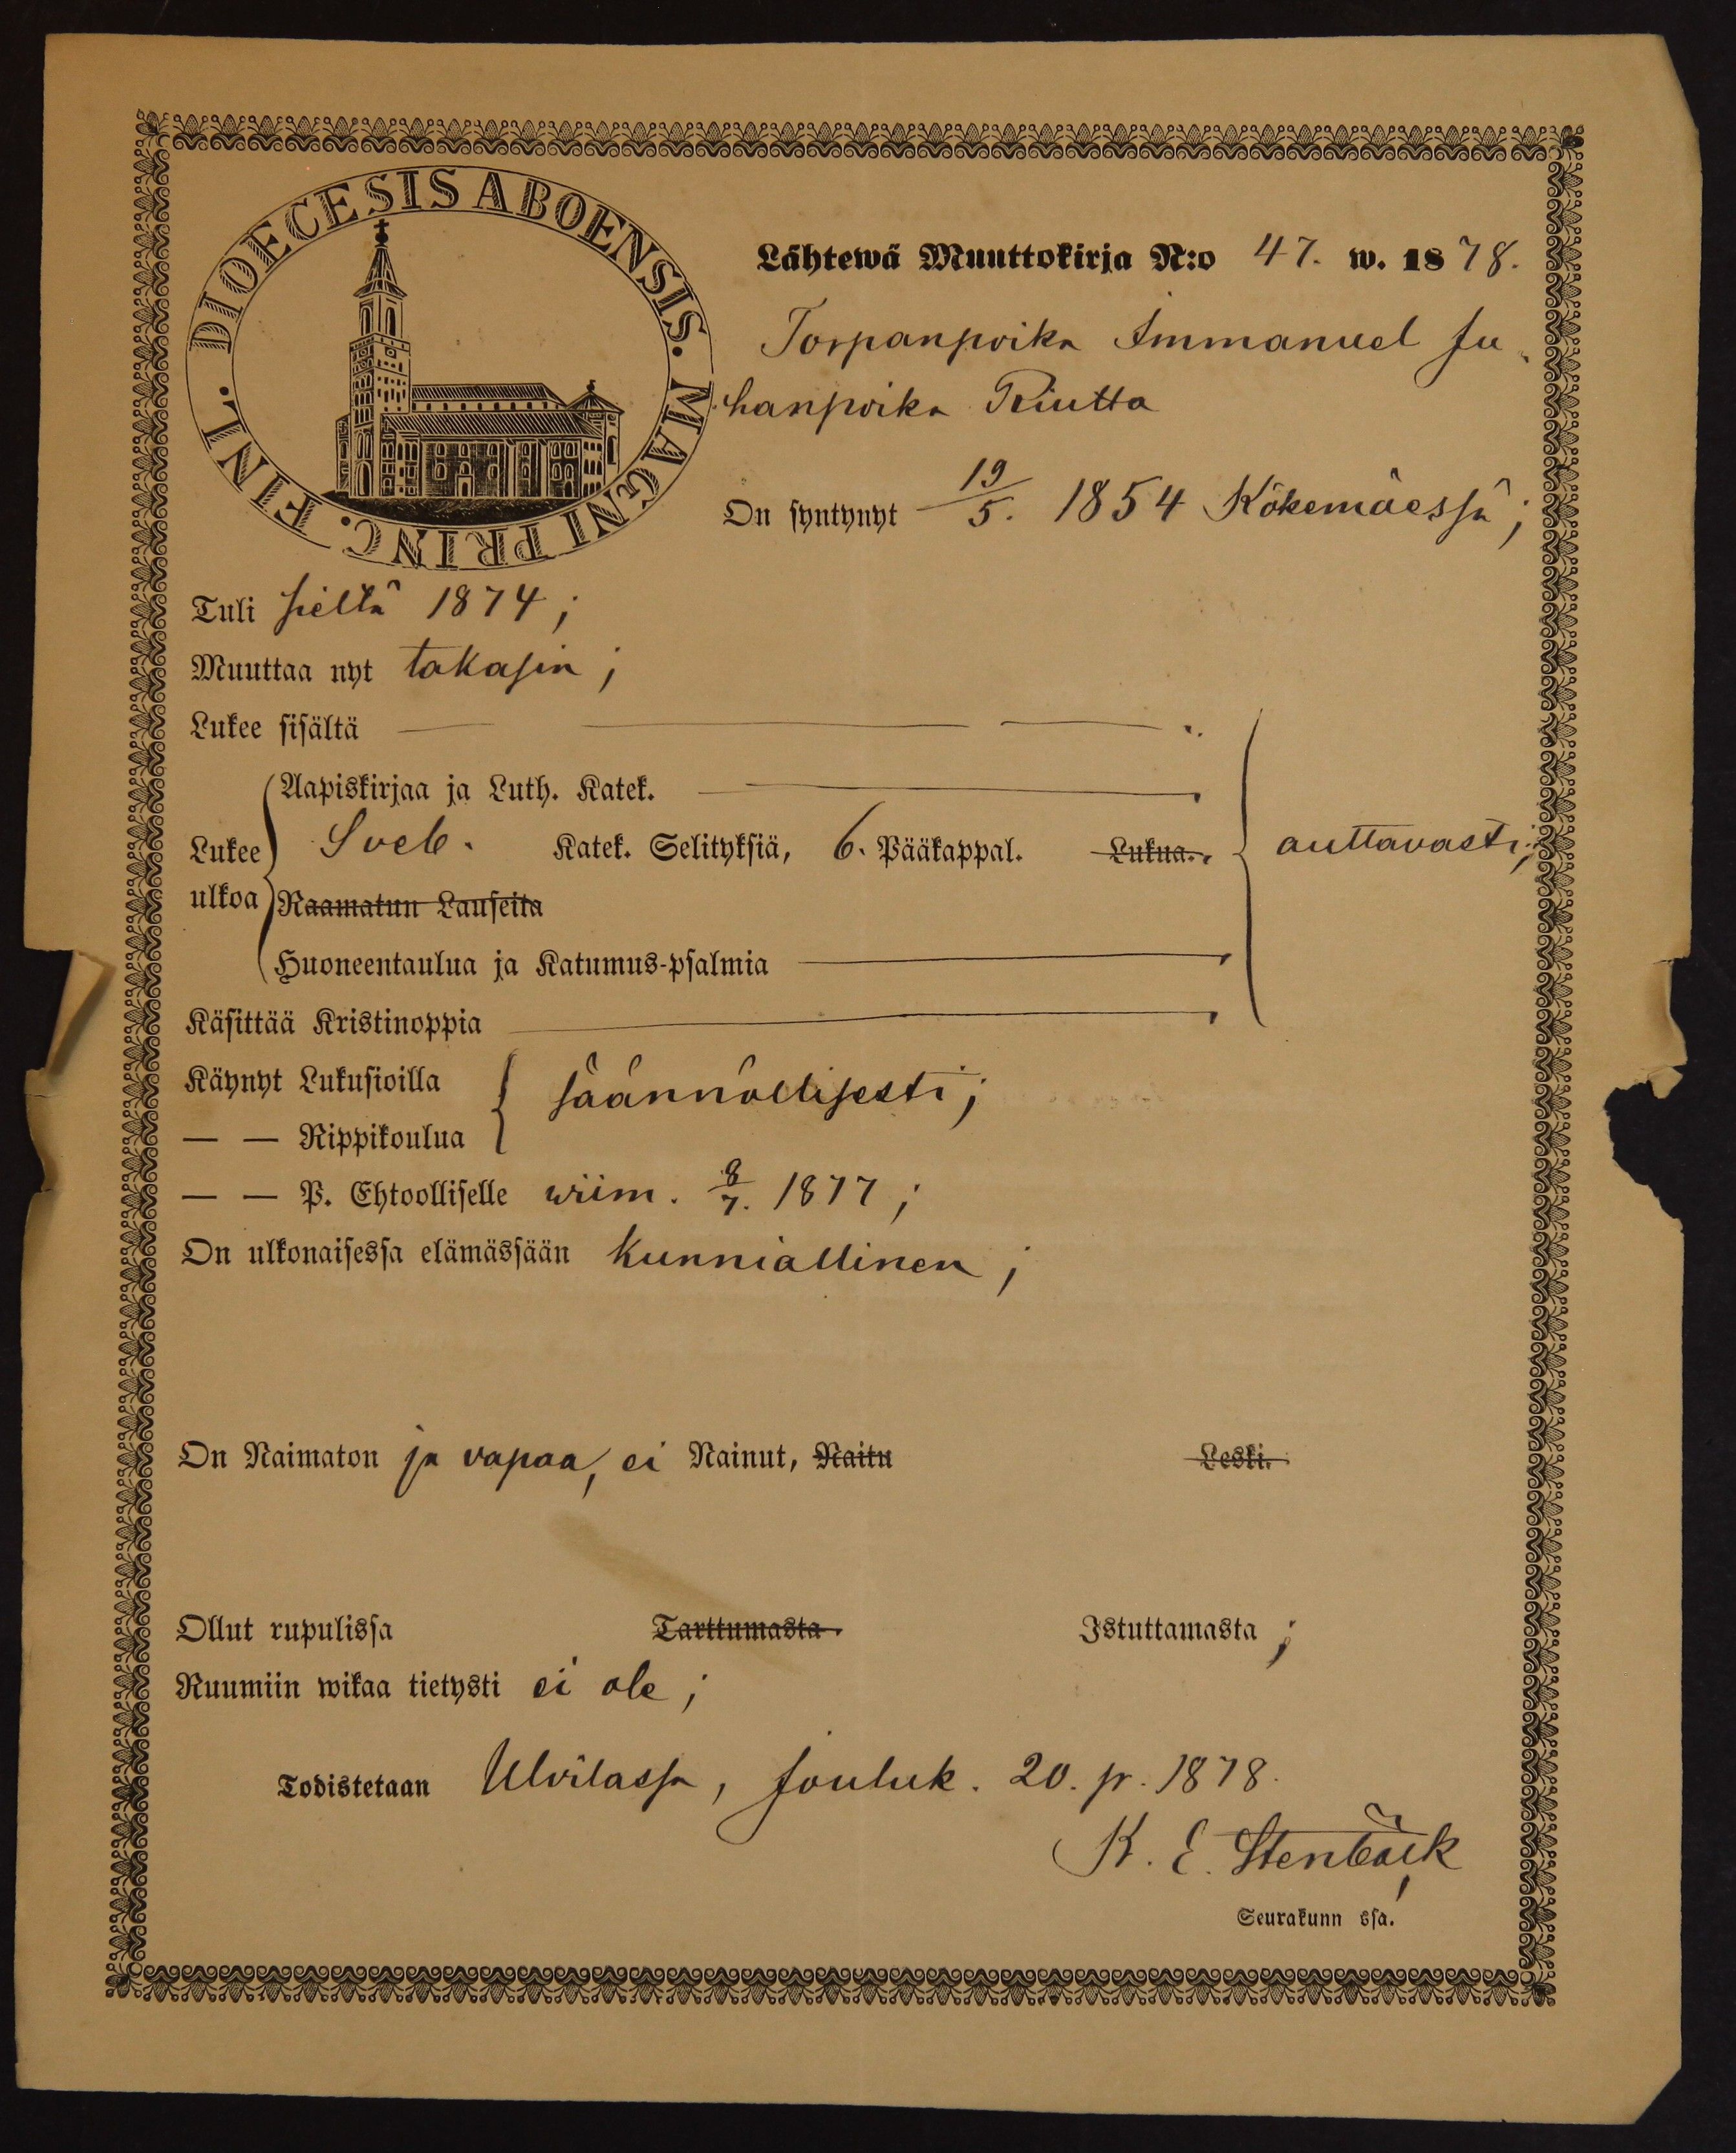 DIOECESIS ABOENSIS. MAGNI PRINC. FINL.
Lähtewä Muuttokirja N:o 47. w. 1878.
Torpanpoika Immanuel Ju
hanpoika Riutta
On syntynyt 19/5. 1854 Kökemäessä;
Tuli sieltä 1874;
Muuttaa nyt takasin;
Lukee sisältä
Aapiskirjaa ja Luth. Katek.
Lukee Sveb. Katek. Selityksiä, 6. Pääkappal. Lukua. auttavasti;
ulkoa Raamatun Lauseita
Huoneentaulua ja Katumus-psalmia
Käsittää Kristinoppia
Käynyt Lukusioilla säännöllisesti;
— — Rippikoulua
— — P. Ehtoolliselle wiim. 8/7. 1877;
On ulkonaisessa elämässään kunniallinen;
On Naimaton ja vapaa, ei Nainut, Naitu Leski.
Ollut rupulissa Tarttumasta. Istuttamasta;
Ruumiin wikaa tietysti ei ole;
Todistetaan Ulvilassa, Jouluk. 20. p. 1878.
K. E. Stenbäck
Seurakunn ssa.